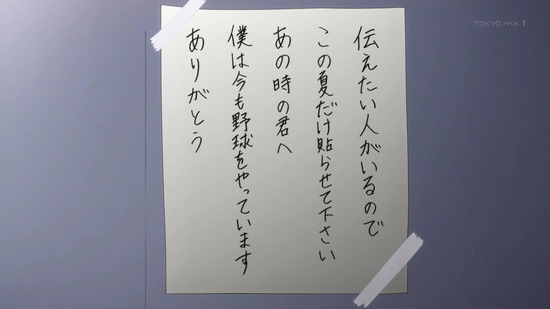 伝えたい人がいるので
この夏だけ貼らせて下さい
あの時の君へ
僕は今も野球をやっています
ありがとう
TOKYO MX 1